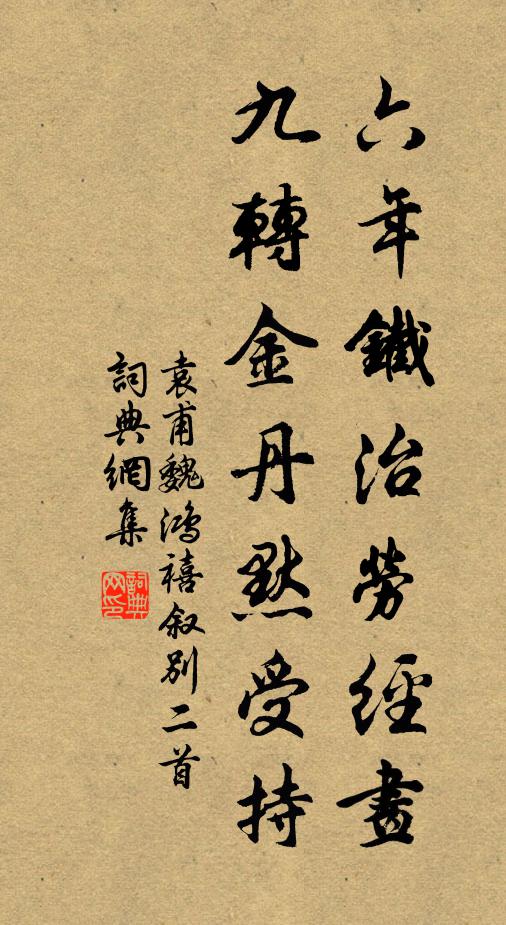 六年鐵治勞經畫
九轉金丹默受持
袁甫魏鴻禧叙別二首
詞典網集
詞典網印